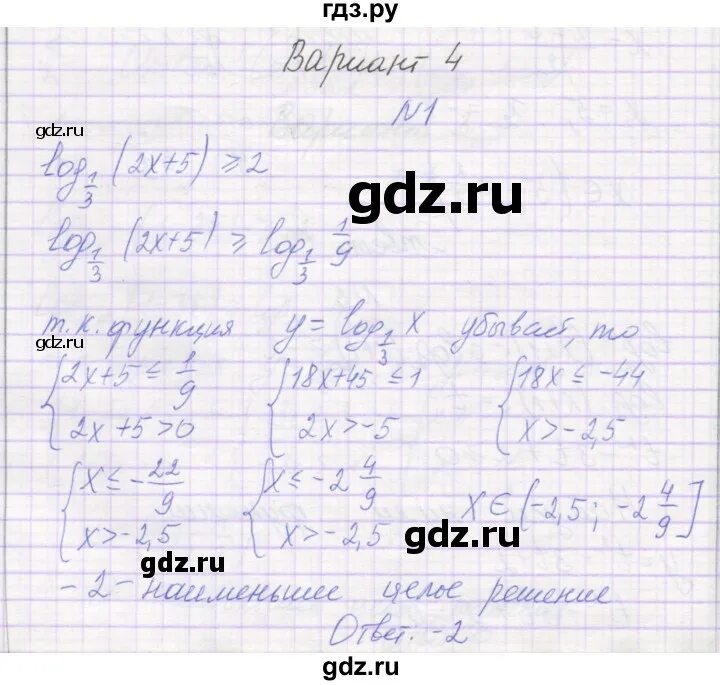 гдз.ру
Вариант 4
N1
gdz.ru
log_{1/3} (2x+5) ≥ 2
gdz.ru
log_{1/3} (2x+5) ≥ log_{1/3} 1/9
т.к. функция y = log_{1/3} x убывает, то
gdz.ru
{2x+5 ≤ 1/9 {18x+45 ≤ 1 {18x ≤ -44
2x+5>0 2x>-5 x>-2,5
{x ≤ -22/9 {x ≤ -2 4/9 x∈(-2,5; -2 4/9]
x>-2,5 x>-2,5
gdz.ru
gdz.ru
-2 - наименьшее целое решение
Ответ: -2
gdz.ru